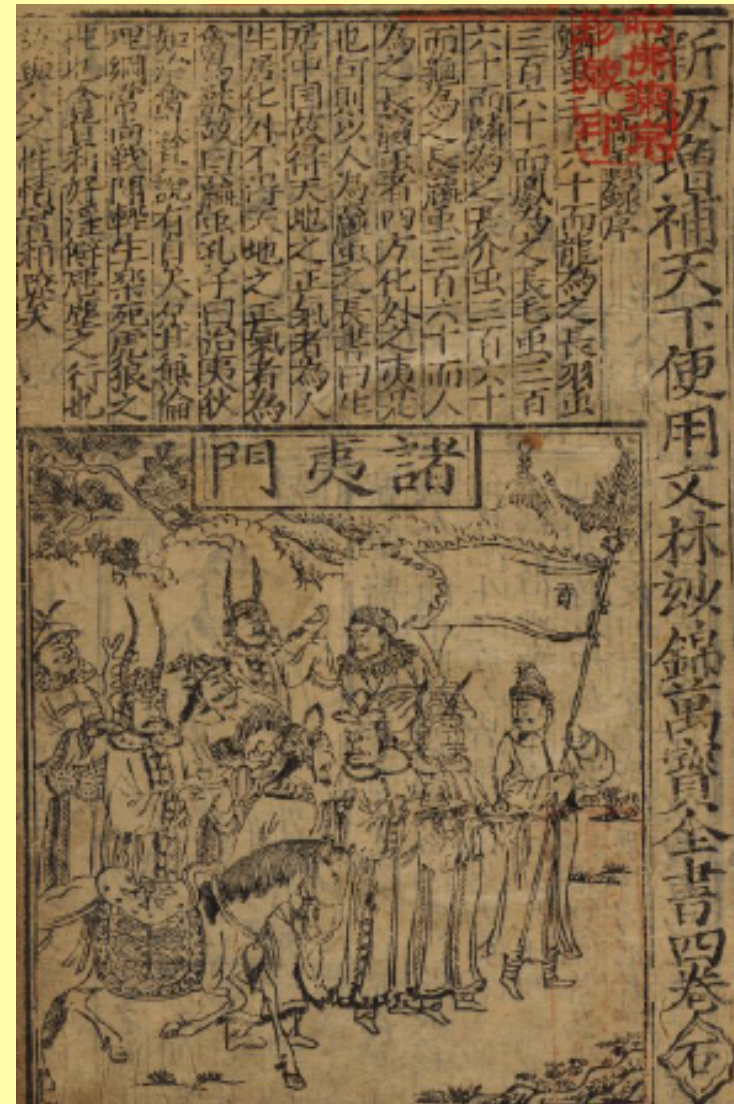 新板增補天下便用文林玅錦萬寶全書四卷
哈佛燕京
珍藏印
錄序
鱗虫三百六十而龍為之長羽虫
三百六十而鳳為之長毛虫三百
六十而麟為之長介虫三百六十
而龜為之長臝虫三百六十而人
為之長臝虫者四方化外之夷是
也何則以人為臝虫之長書曰生
居中国故得天地之正氣者為人
生居化外不得天地之正氣者為
禽為獸故曰臝虫孔子曰治夷狄
如治禽獸其說有自矣其無倫
理綱常尚戰鬪輕生樂死虎狼之
性也貪貨利好淫僻之行也
故與人之性情實相遠矣
諸夷門